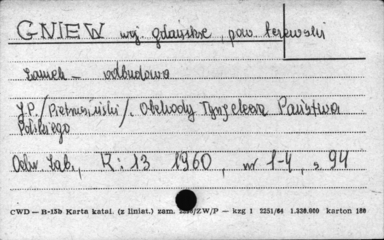 GNIEW woj gdańskie, pow. tczewski
zamek – odbudowa
J.P. /Pietrusiński/. Obchody Tysiąclecia Państwa
Polskiego
Ochr. Zab., R: 13 1960, nr 1-4, s 94
CWD — B-15b Karta katal. (z liniat.) zam. /ZW/P — kzg 1 2251/64 1.320.000 karton 180